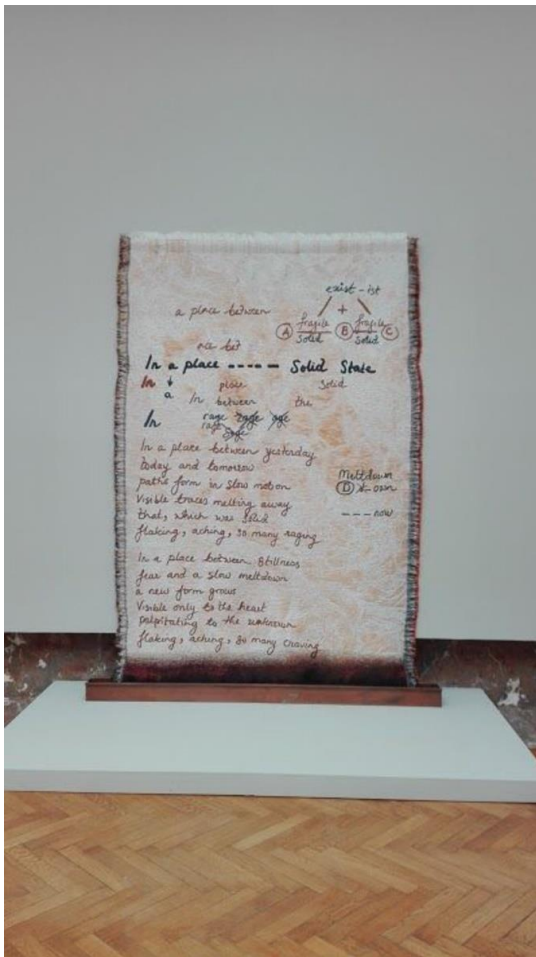 exist - ist
a place between
+
A fragile B fragile C
solid solid
nce bet
In a place ----- Solid State
In place Solid
a
In between the
In rage rage age
rage
In a place between yesterday
today and tomorrow
paths form in slow motion
Visible traces melting away
that, which was solid
flaking, aching, so many raging
Meltdown
D
--- now
In a place between stillness
fear and a slow meltdown
a new form grows
Visible only to the heart
palpitating to the unknown
flaking, aching, so many craving